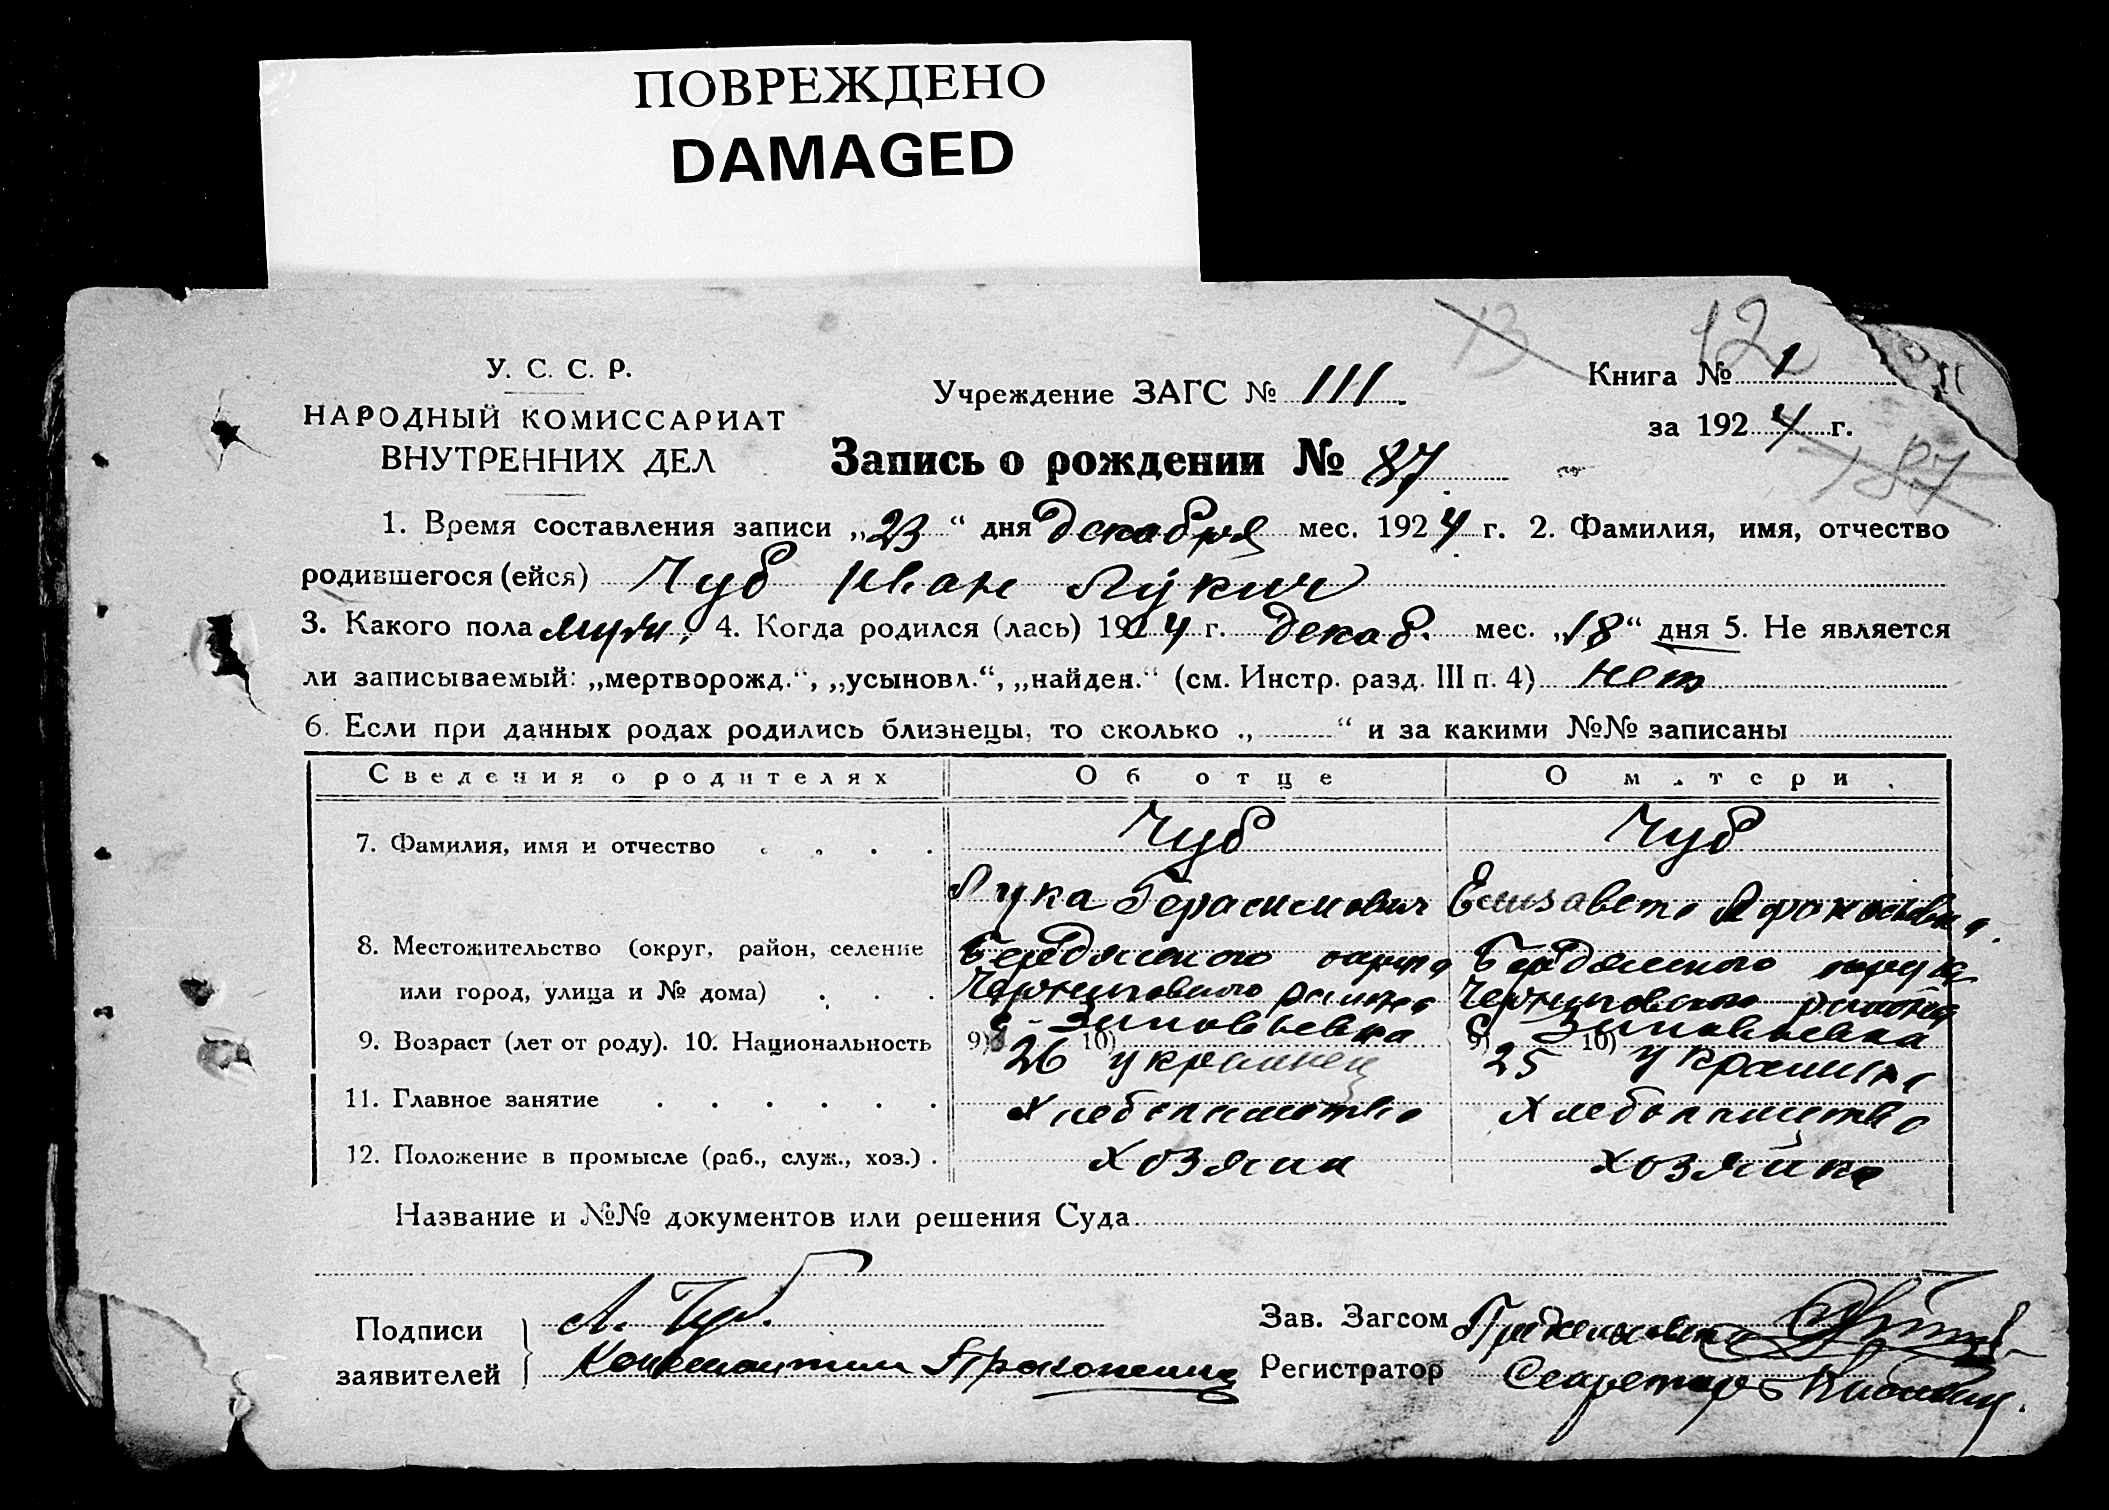 ПОВРЕЖДЕНО
DAMAGED
13
12
11
У. С. С. Р.
НАРОДНЫЙ КОМИССАРИАТ
ВНУТРЕННИХ ДЕЛ
Учреждение ЗАГС № 111
Книга № 1
за 1924 г.
Запись о рождении № 87
87
1. Время составления записи „23“ дня декабря мес. 1924 г. 2. Фамилия, имя, отчество
родившегося (ейся) Чуб Иван Лукич
3. Какого пола муж, 4. Когда родился (лась) 1924 г. декаб. мес. „18“ дня 5. Не является
ли записываемый: „мертворожд.“, „усыновл.“, „найден.“ (см. Инстр. разд. III п. 4) нет
6. Если при данных родах родились близнецы, то сколько „ “ и за какими №№ записаны
Сведения о родителях Об отце О матери
7. Фамилия, имя и отчество Чуб Чуб
Лука Герасимович Елизавета
8. Местожительство (округ, район, селение Бердянского округа Бердянского округа
или город, улица и № дома) района района
с. Зиновьевка с. Зиновьевка
9. Возраст (лет от роду). 10. Национальность 9) 26 10) украинец 9) 25 10) украинка
11. Главное занятие Хлебопашество Хлебопашество
12. Положение в промысле (раб., служ., хоз.) хозяин хозяйка
Название и №№ документов или решения Суда
Подписи заявителей
Л. Чуб.
Константин
Зав. Загсом
Регистратор Секретарь